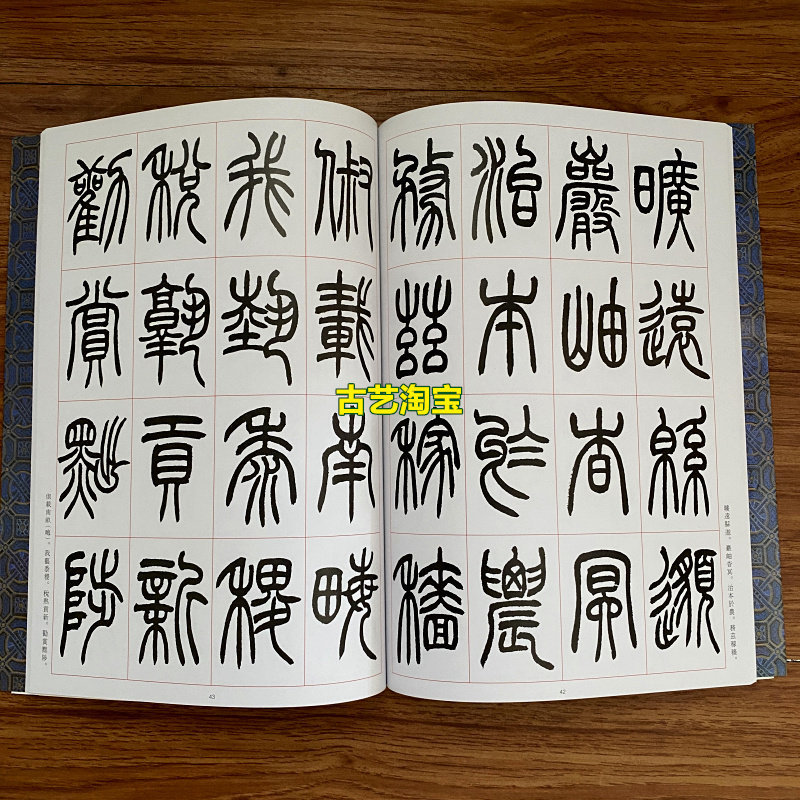 曠遠緜邈
巖岫杳冥
治本於農
務茲稼穡
曠遠緜邈。巖岫杳冥。治本於農。務茲稼穡。
42
俶載南畮
我埶黍稷
稅孰貢新
勸賞黜陟
俶載南畝(畮)。我藝黍稷。稅熟貢新。勸賞黜陟。
43
古艺淘宝